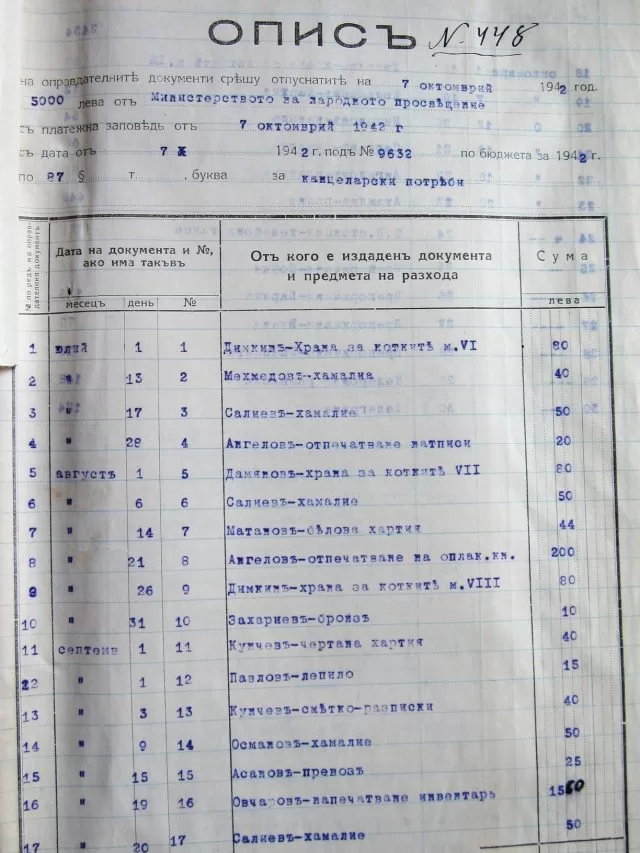 ОПИСЪ № 448
на оправдателнитѣ документи срѣшу отпуснатитѣ на 7 октомврий 1942 год.
5000 лева отъ Министерството на народното просвѣщение
съ платежна заповѣдь отъ 7 октомврий 1942 г
съ дата отъ 7 X 1942 г. подъ № 9632 по бюджета за 1942 г.
по 87 § т. , буква за канцеларски потрѣби
№ по редъ на оправдателния документъ
Дата на документа и №, ако има такъвъ
Отъ кого е издаденъ документа и предмета на разхода
Сума
месецъ день № лева
1 юлий 1 1 Димкивъ-Храна за коткитѣ м.VI 80
2 " 13 2 Мехмедовъ-хамалиа 40
3 " 17 3 Салиевъ-хамалие 50
4 " 28 4 Ангеловъ-отпечатване натписи 20
5 августъ 1 5 Дамяновъ-храна за коткитѣ VII 80
6 " 6 6 Салиевъ-хамалие 50
7 " 14 7 Матановъ-бѣлова хартия 44
8 " 21 8 Ангеловъ-отпечатване на оплак.кн. 200
9 " 26 9 Димкивъ-храна за коткитѣ м.VIII 80
10 " 31 10 Захариевъ-бройзъ 10
11 септемв 1 11 Кунчевъ-чертана хартия 40
22 " 1 12 Павловъ-лепило 15
13 " 3 13 Кунчевъ-смѣтко-разписки 40
14 " 9 14 Османовъ-хамалие 50
15 " 15 15 Асановъ-превозъ 25
16 " 19 16 Овчаровъ-напечатване инвентарь 1560
17 " 20 17 Салиевъ-хамалие 50